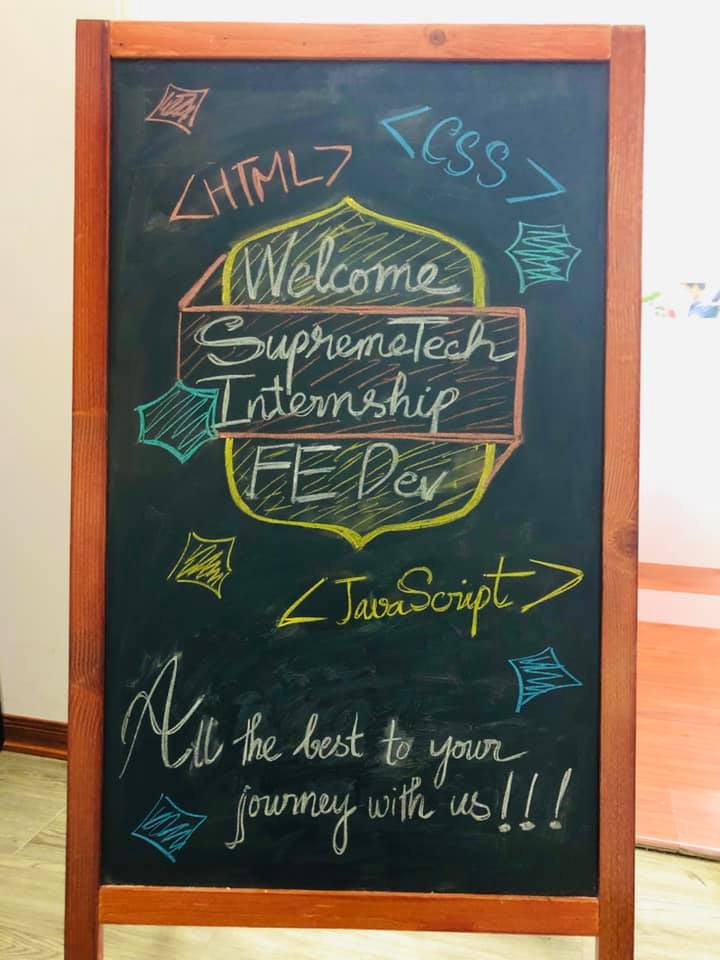 <HTML>
<CSS>
Welcome
SupremeTech
Internship
FE Dev
<JavaScript>
All the best to your
journey with us!!!